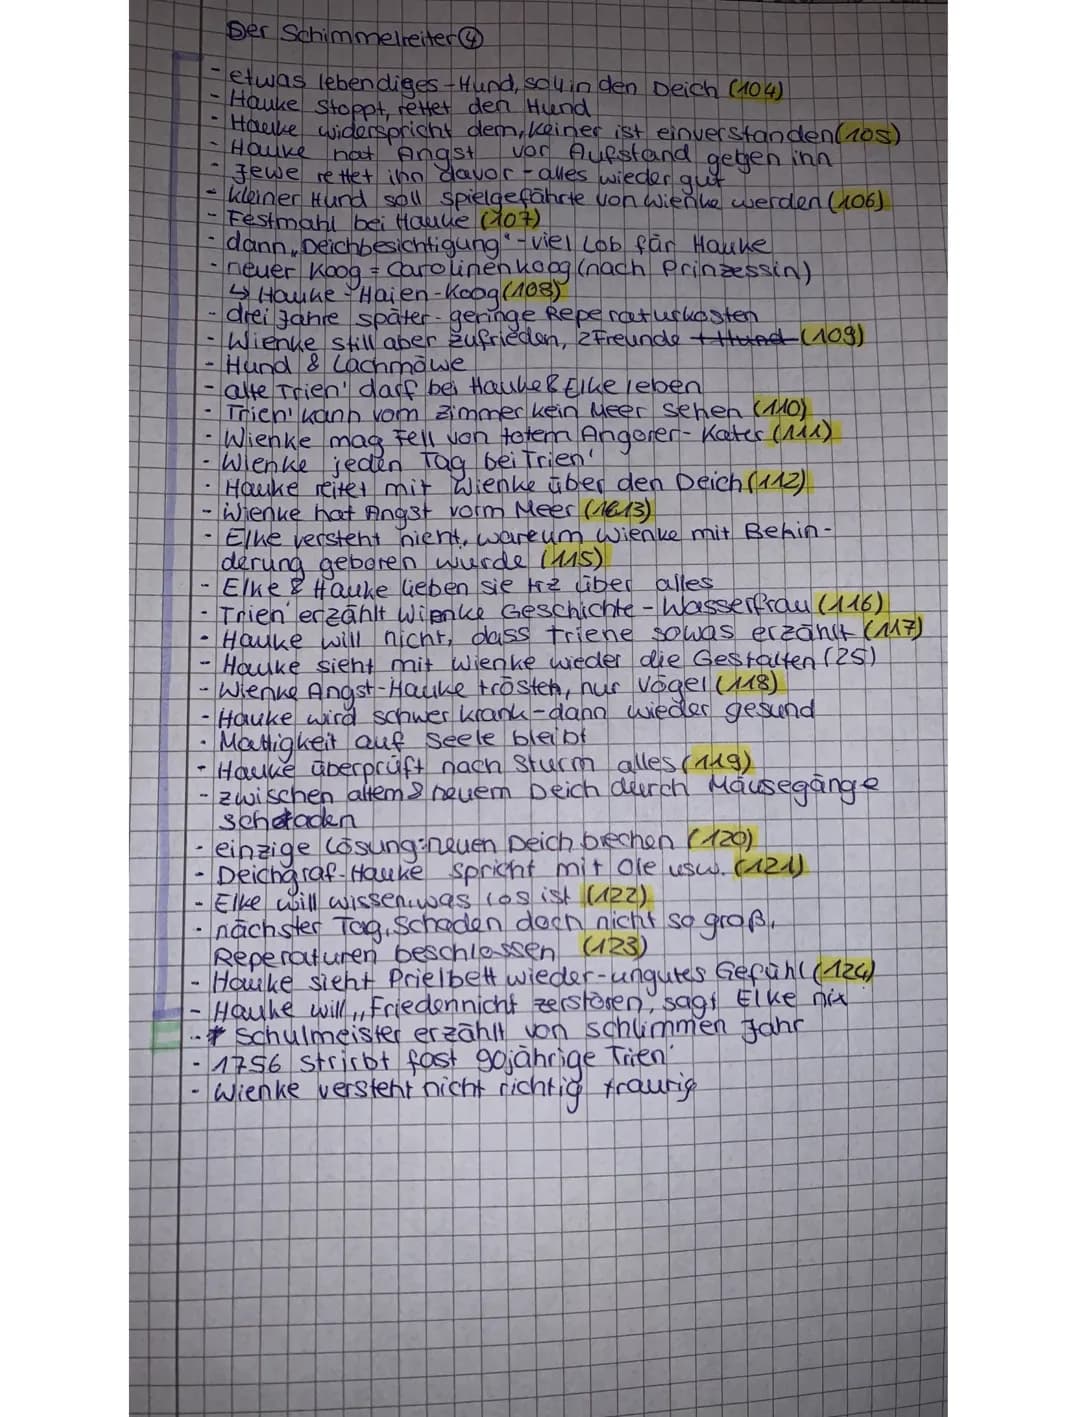 Der Schimmelreiter ④
- etwas lebendiges - Hund, soll in den Deich (104)
- Hauke stoppt, rettet den Hund
- Hauke widerspricht dem, keiner ist einverstanden (105)
- Hauke hat Angst vor Aufstand gegen inn
- Jewe rettet ihn davor - alles wieder gut
- kleiner Hund soll Spielgefährte von Wienke werden (106)
- Festmahl bei Hauke (107)
- dann „Deichbesichtigung" - viel Lob für Hauke
- neuer Koog = Carolinenkoog (nach Prinzessin)
↳ Hauke-Haien-Koog (108)
- drei Jahre später - geringe Reperaturkosten
- Wienke still aber zufrieden, 2 Freunde + Hund (109)
- Hund & Lachmöwe
- alte Trien' darf bei Hauke & Elke leben
- Trien' kann vom Zimmer kein Meer sehen (110)
- Wienke mag Fell von totem Angorer-Kater (111)
- Wienke jeden Tag bei Trien'
- Hauke reitet mit Wienke über den Deich (112)
- Wienke hat Angst vorm Meer (113)
- Elke versteht nicht, wareum Wienke mit Behin-
derung geboren wurde (115)
- Elke & Hauke lieben sie trz über alles
- Trien' erzählt Wienke Geschichte - Wasserfrau (116)
- Hauke will nicht, dass Triene sowas erzählt (117)
- Hauke sieht mit Wienke wieder die Gestalten (25)
- Wienke Angst - Hauke trösten, nur Vögel (118)
- Hauke wird schwer krank - dann wieder gesund
- Mattigkeit auf Seele bleibt
- Hauke überprüft nach Sturm alles (119)
- zwischen altem & neuem Deich durch Mäusegänge
schaden
- einzige Lösung: neuen Deich brechen (120)
- Deichgraf-Hauke spricht mit Ole usw. (121)
- Elke will wissen was los ist (122)
- nächster Tag, Schaden doch nicht so groß,
Reperaturen beschlossen (123)
- Hauke sieht Prielbett wieder - ungutes Gefühl (124)
- Hauke will „Frieden nicht zerstören", sagt Elke nix
- * Schulmeister erzählt von schlimmen Jahr
- 1756 strirbt fast 90jährige Trien'
- Wienke versteht nicht richtig traurig